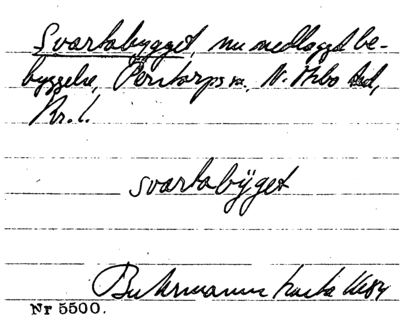 Svartabygget, nu nedlagd be-
byggelse, Perstorps sn, N. Åsbo hd,
Nr. 1.
svartabÿget
Buhrmanns karta 1684
Nr 5500.